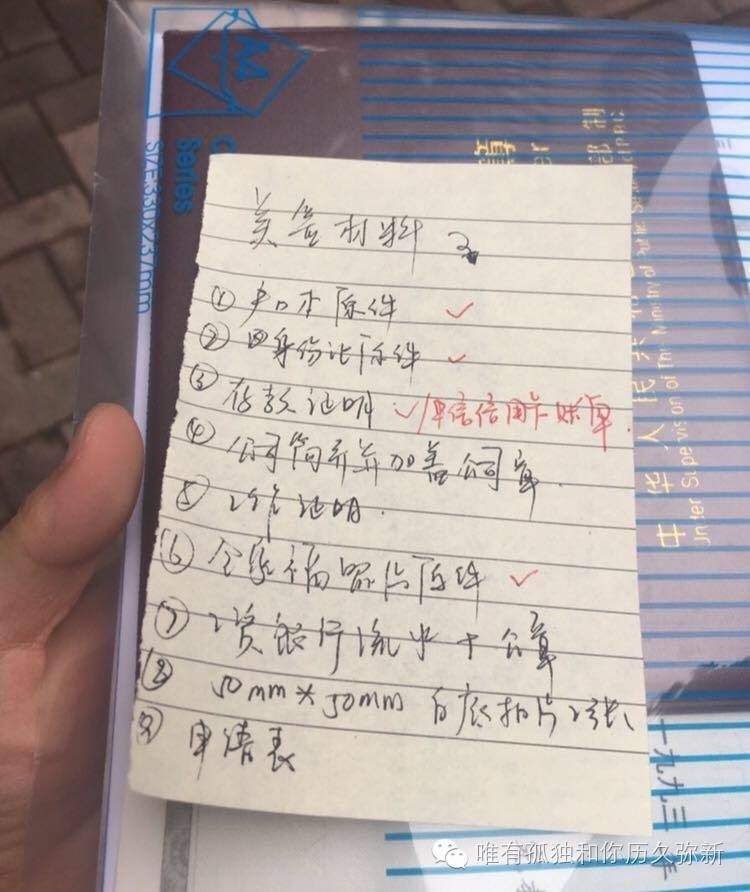 A4
Series
SIZE:330X237mm
美签材料
① 户口本原件 ✓
② 身份证原件 ✓
③ 存款证明 ✓/中信信用卡账单.
④ 公司简介并加盖公司章.
⑤ 工作证明.
⑥ 全家福照片原件 ✓
⑦ 工资银行流水+公章
⑧ 50mm*50mm 白底相片2张、
⑨ 申请表
中华人民共和
Under Supervision of The Ministry of
部制
一九九三年
唯有孤独和你历久弥新